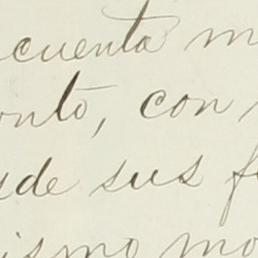 cuenta m
onto, con
sde sus f
ismo mo